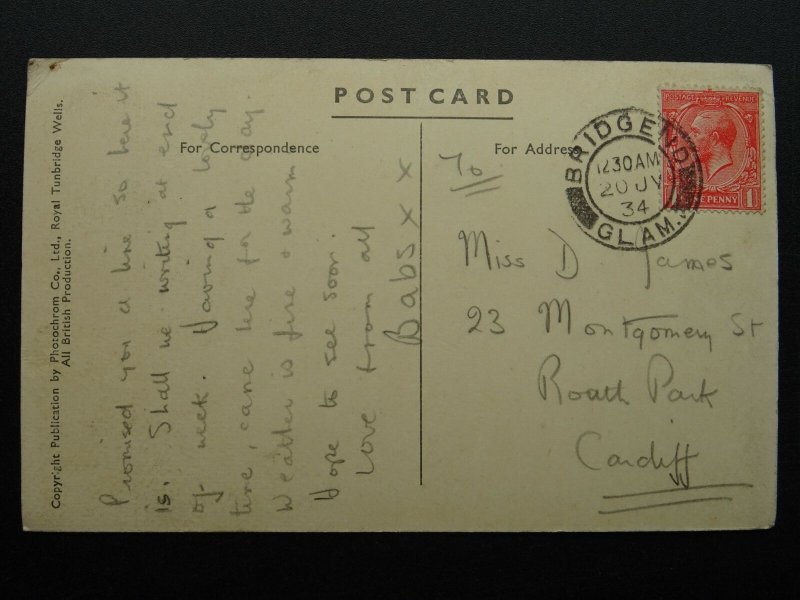 POST CARD
For Correspondence
For Address
Copyright Publication by Photochrom Co., Ltd., Royal Tunbridge Wells.
All British Production.
Promised you a line so here it
is. Shall be writing at end
of week. Having a lovely
time, came here for the day.
Weather is fine & warm
Hope to see soon.
Love from all
Babs x x
POSTAGE REVENUE
ONE PENNY 1
BRIDGEND
12 30 AM
20 JY
34
GLAM.
To
Miss D James
23 Montgomery St
Roath Park
Cardiff